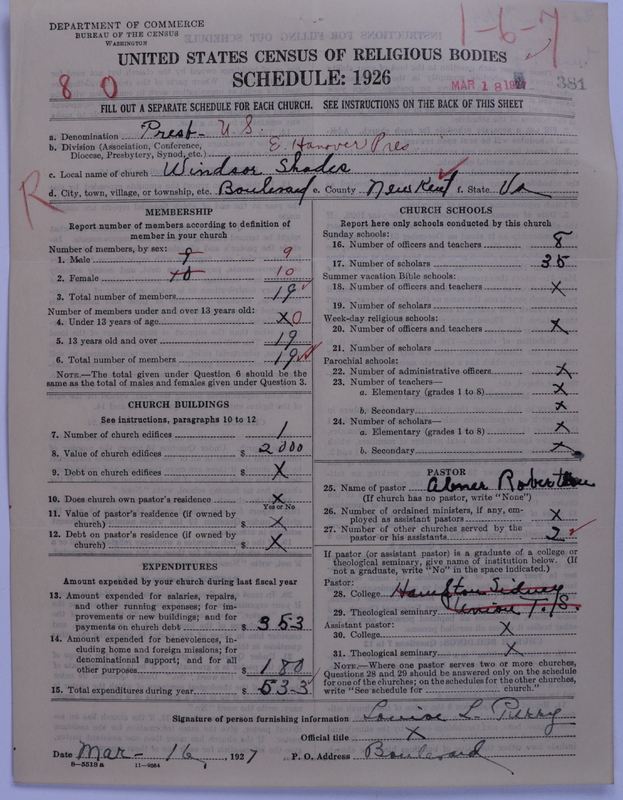 DEPARTMENT OF COMMERCE
BUREAU OF THE CENSUS
WASHINGTON
1-6-7
UNITED STATES CENSUS OF RELIGIOUS BODIES
SCHEDULE: 1926
8 0
MAR 18 1927 381
FILL OUT A SEPARATE SCHEDULE FOR EACH CHURCH. SEE INSTRUCTIONS ON THE BACK OF THIS SHEET
a. Denomination Presb- U.S.
b. Division (Association, Conference, Diocese, Presbytery, Synod, etc.) E. Hanover Pres
c. Local name of church Windsor Shades
R
d. City, town, village, or township, etc. Boulevard e. County New Kent f. State Va
MEMBERSHIP
Report number of members according to definition of
member in your church
Number of members, by sex:
1. Male 9 9
2. Female 10 10
3. Total number of members 19
Number of members under and over 13 years old:
4. Under 13 years of age X 0
5. 13 years old and over 19
6. Total number of members 19
NOTE.—The total given under Question 6 should be
same as the total of males and females given under Question 3.
CHURCH BUILDINGS
See instructions, paragraphs 10 to 12
7. Number of church edifices 1
8. Value of church edifices $ 2000
9. Debt on church edifices $ X
10. Does church own pastor's residence X
Yes or No
11. Value of pastor's residence (if owned by
church) $ X
12. Debt on pastor's residence (if owned by
church) $ X
EXPENDITURES
Amount expended by your church during last fiscal year
13. Amount expended for salaries, repairs,
and other running expenses; for im-
provements or new buildings; and for
payments on church debt $ 353
14. Amount expended for benevolences, in-
cluding home and foreign missions; for
denominational support; and for all
other purposes $ 180
15. Total expenditures during year $ 533
CHURCH SCHOOLS
Report here only schools conducted by this church
Sunday schools:
16. Number of officers and teachers 8
17. Number of scholars 35
Summer vacation Bible schools:
18. Number of officers and teachers X
19. Number of scholars
Week-day religious schools:
20. Number of officers and teachers X
21. Number of scholars
Parochial schools:
22. Number of administrative officers X
23. Number of teachers—
a. Elementary (grades 1 to 8) X
b. Secondary X
24. Number of scholars—
a. Elementary (grades 1 to 8) X
b. Secondary X
PASTOR
25. Name of pastor Abner Robertson
(If church has no pastor, write "None")
26. Number of ordained ministers, if any, em-
ployed as assistant pastors X
27. Number of other churches served by the
pastor or his assistants 2
If pastor (or assistant pastor) is a graduate of a college or
theological seminary, give name of institution below. (If
not a graduate, write "No" in the space indicated.)
Pastor:
28. College Hampton Sidney
29. Theological seminary Union T. S.
Assistant pastor:
30. College X
31. Theological seminary X
NOTE.—Where one pastor serves two or more churches,
Questions 28 and 29 should be answered only on the schedule
for one of the churches; on the schedules for the other churches,
write "See schedule for church."
Signature of person furnishing information Louise L. Perry
Official title X
Date Mar- 16, 1927 P. O. Address Boulevard
8-5518 a 11-9264